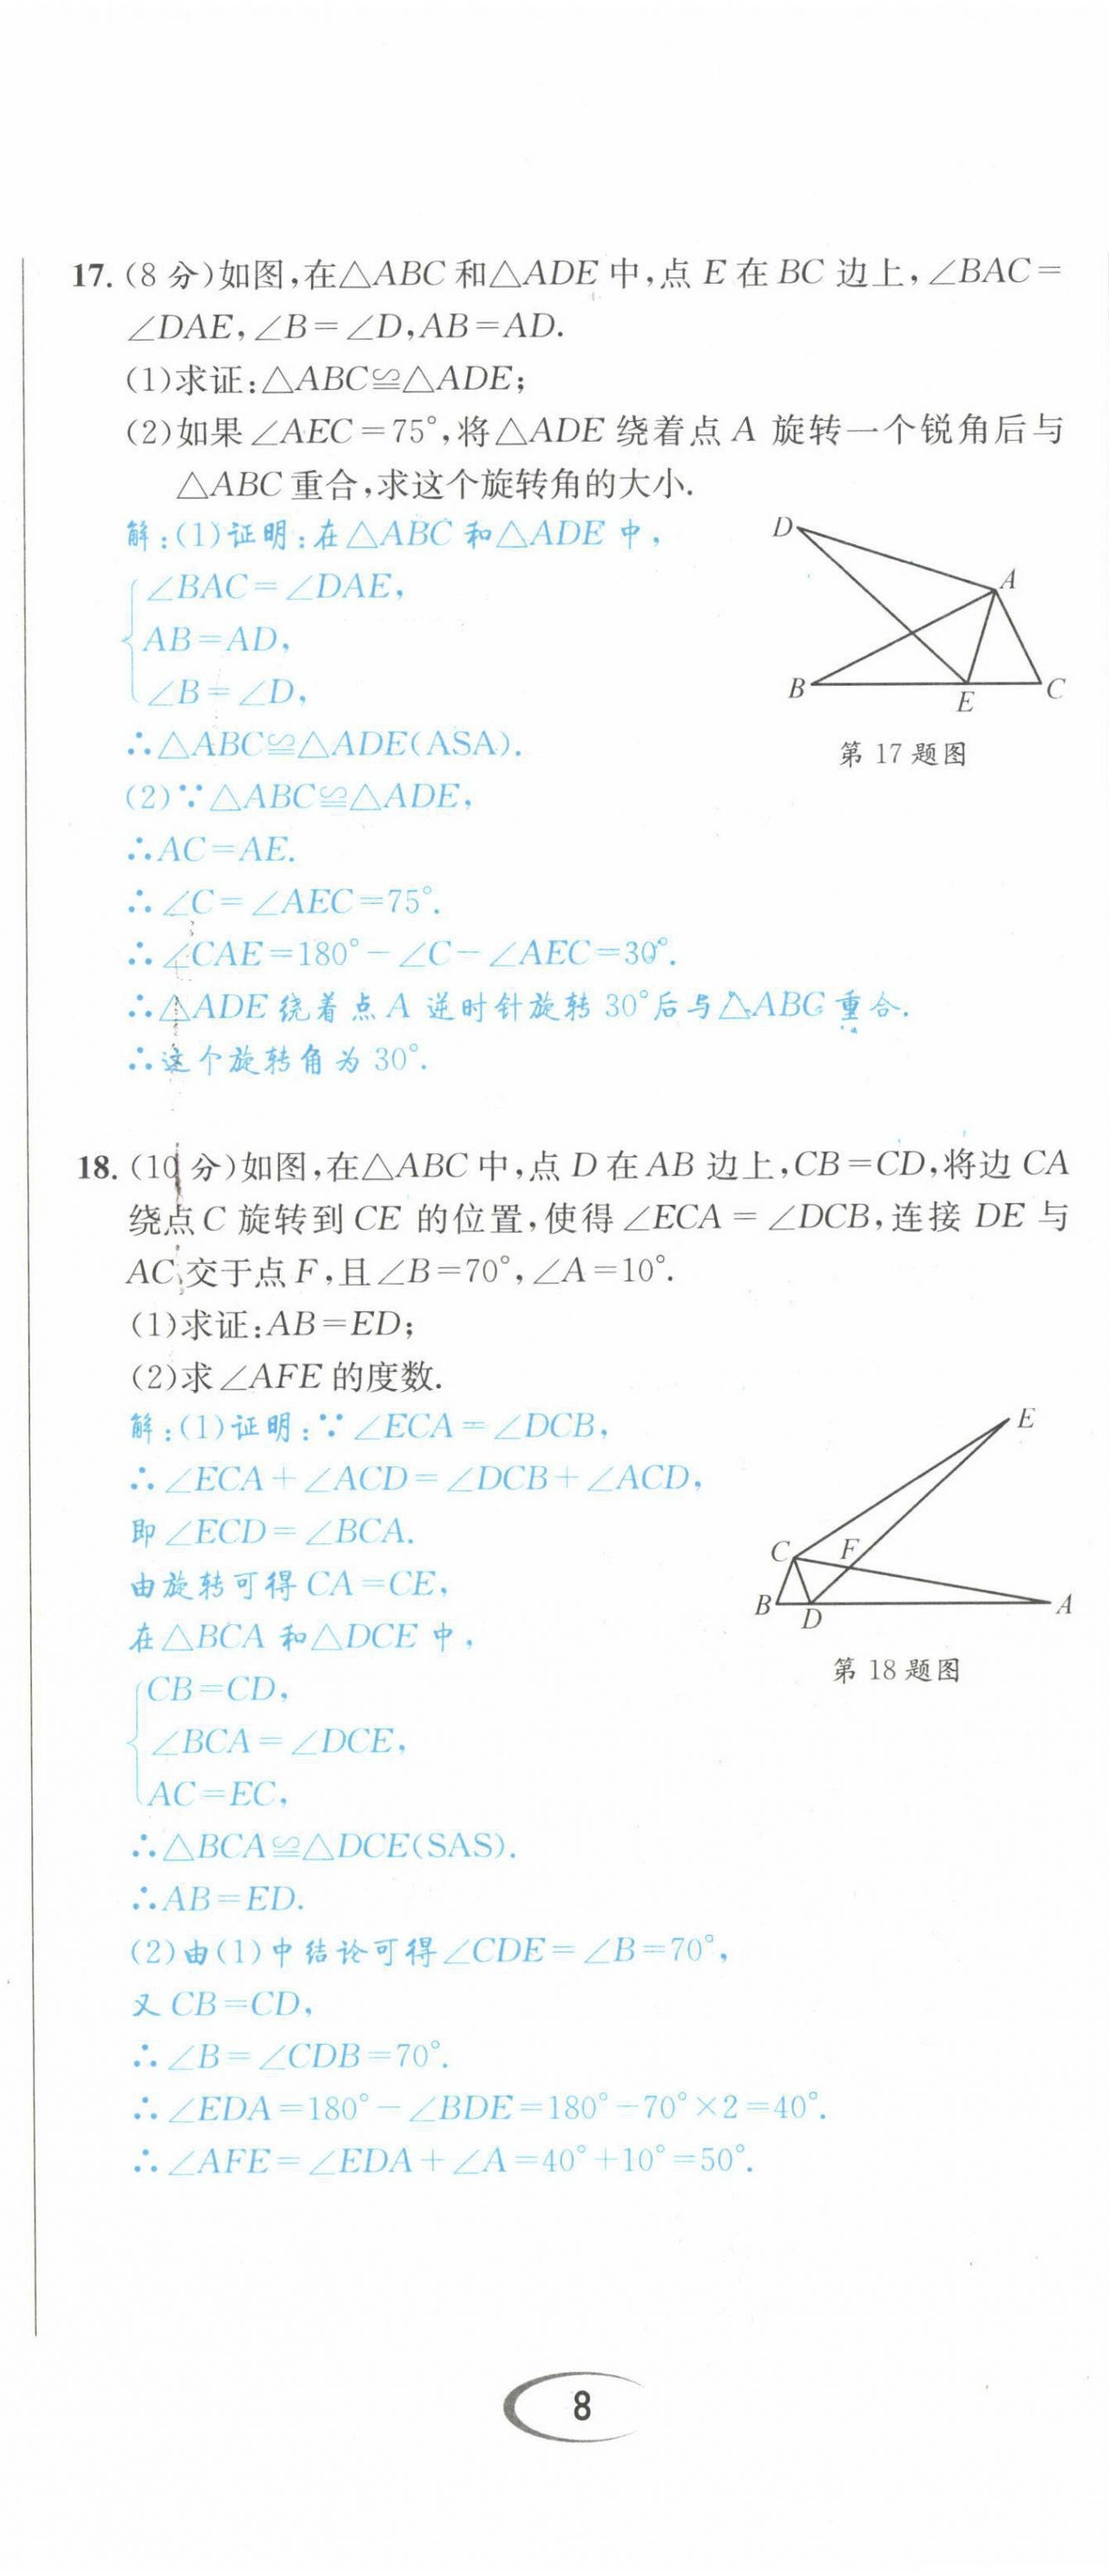 17. (8 分)如图,在△ABC 和△ADE 中,点 E 在 BC 边上,∠BAC=
∠DAE,∠B=∠D,AB=AD.
(1)求证:△ABC≌△ADE;
(2)如果∠AEC=75°,将△ADE 绕着点 A 旋转一个锐角后与
△ABC 重合,求这个旋转角的大小.
解:(1)证明:在△ABC 和△ADE 中,
∠BAC=∠DAE,
AB=AD,
∠B=∠D,
∴△ABC≌△ADE(ASA).
(2)∵△ABC≌△ADE,
∴AC=AE.
∴∠C=∠AEC=75°.
∴∠CAE=180°-∠C-∠AEC=30°.
∴△ADE 绕着点 A 逆时针旋转 30°后与△ABC 重合.
∴这个旋转角为 30°.
D
A
B
E
C
第 17 题图
18. (10 分)如图,在△ABC 中,点 D 在 AB 边上,CB=CD,将边 CA
绕点 C 旋转到 CE 的位置,使得∠ECA=∠DCB,连接 DE 与
AC 交于点 F,且∠B=70°,∠A=10°.
(1)求证:AB=ED;
(2)求∠AFE 的度数.
解:(1)证明:∵∠ECA=∠DCB,
∴∠ECA+∠ACD=∠DCB+∠ACD,
即∠ECD=∠BCA.
由旋转可得 CA=CE,
在△BCA 和△DCE 中,
CB=CD,
∠BCA=∠DCE,
AC=EC,
∴△BCA≌△DCE(SAS).
∴AB=ED.
(2)由(1)中结论可得∠CDE=∠B=70°,
又 CB=CD,
∴∠B=∠CDB=70°.
∴∠EDA=180°-∠BDE=180°-70°×2=40°.
∴∠AFE=∠EDA+∠A=40°+10°=50°.
E
C
F
B
D
A
第 18 题图
8